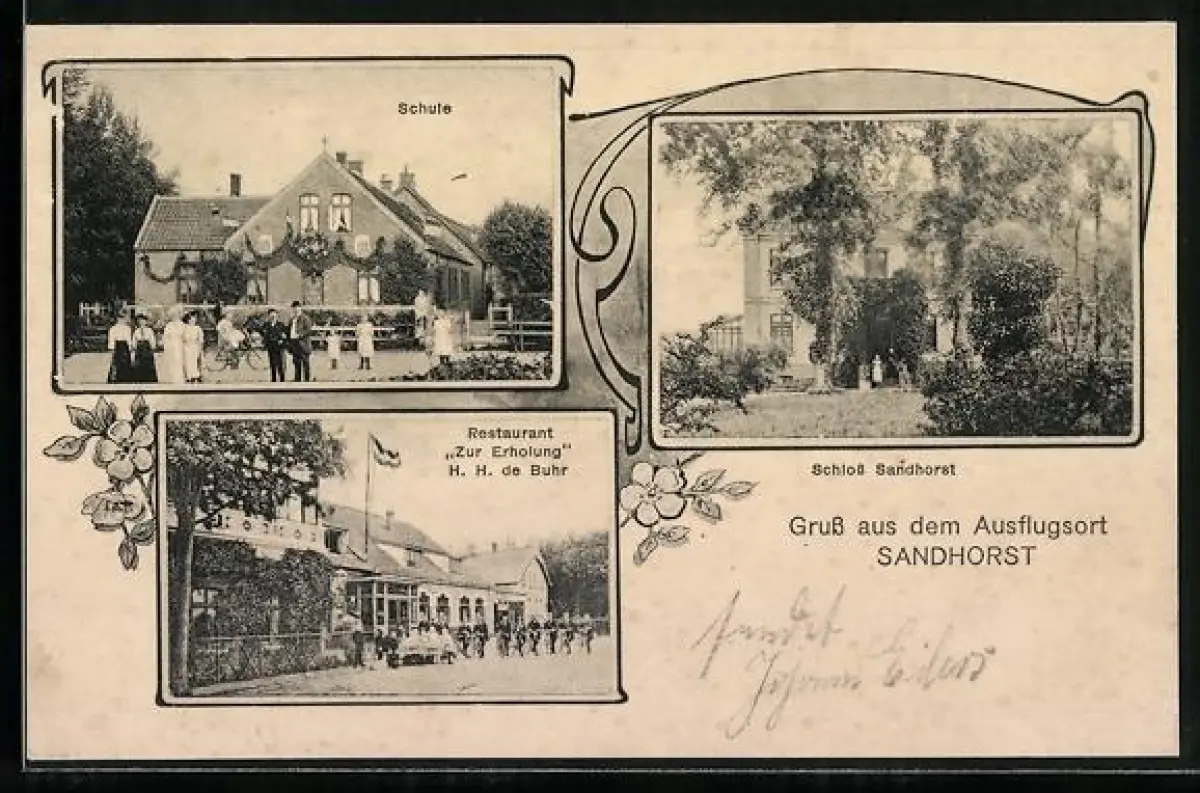 Schule
Restaurant
„Zur Erholung"
H. H. de Buhr
Schloß Sandhorst
Gruß aus dem Ausflugsort
SANDHORST
sendet
Johann Eilers